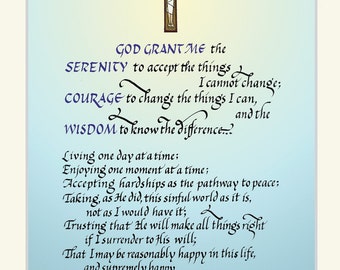 GOD GRANT ME the
SERENITY to accept the things
I cannot change;
COURAGE to change the things I can,
and the
WISDOM to know the difference...
Living one day at a time;
Enjoying one moment at a time;
Accepting hardships as the pathway to peace:
Taking, as He did, this sinful world as it is,
not as I would have it;
Trusting that He will make all things right
if I surrender to His will;
That I may be reasonably happy in this life,
and supremely happy